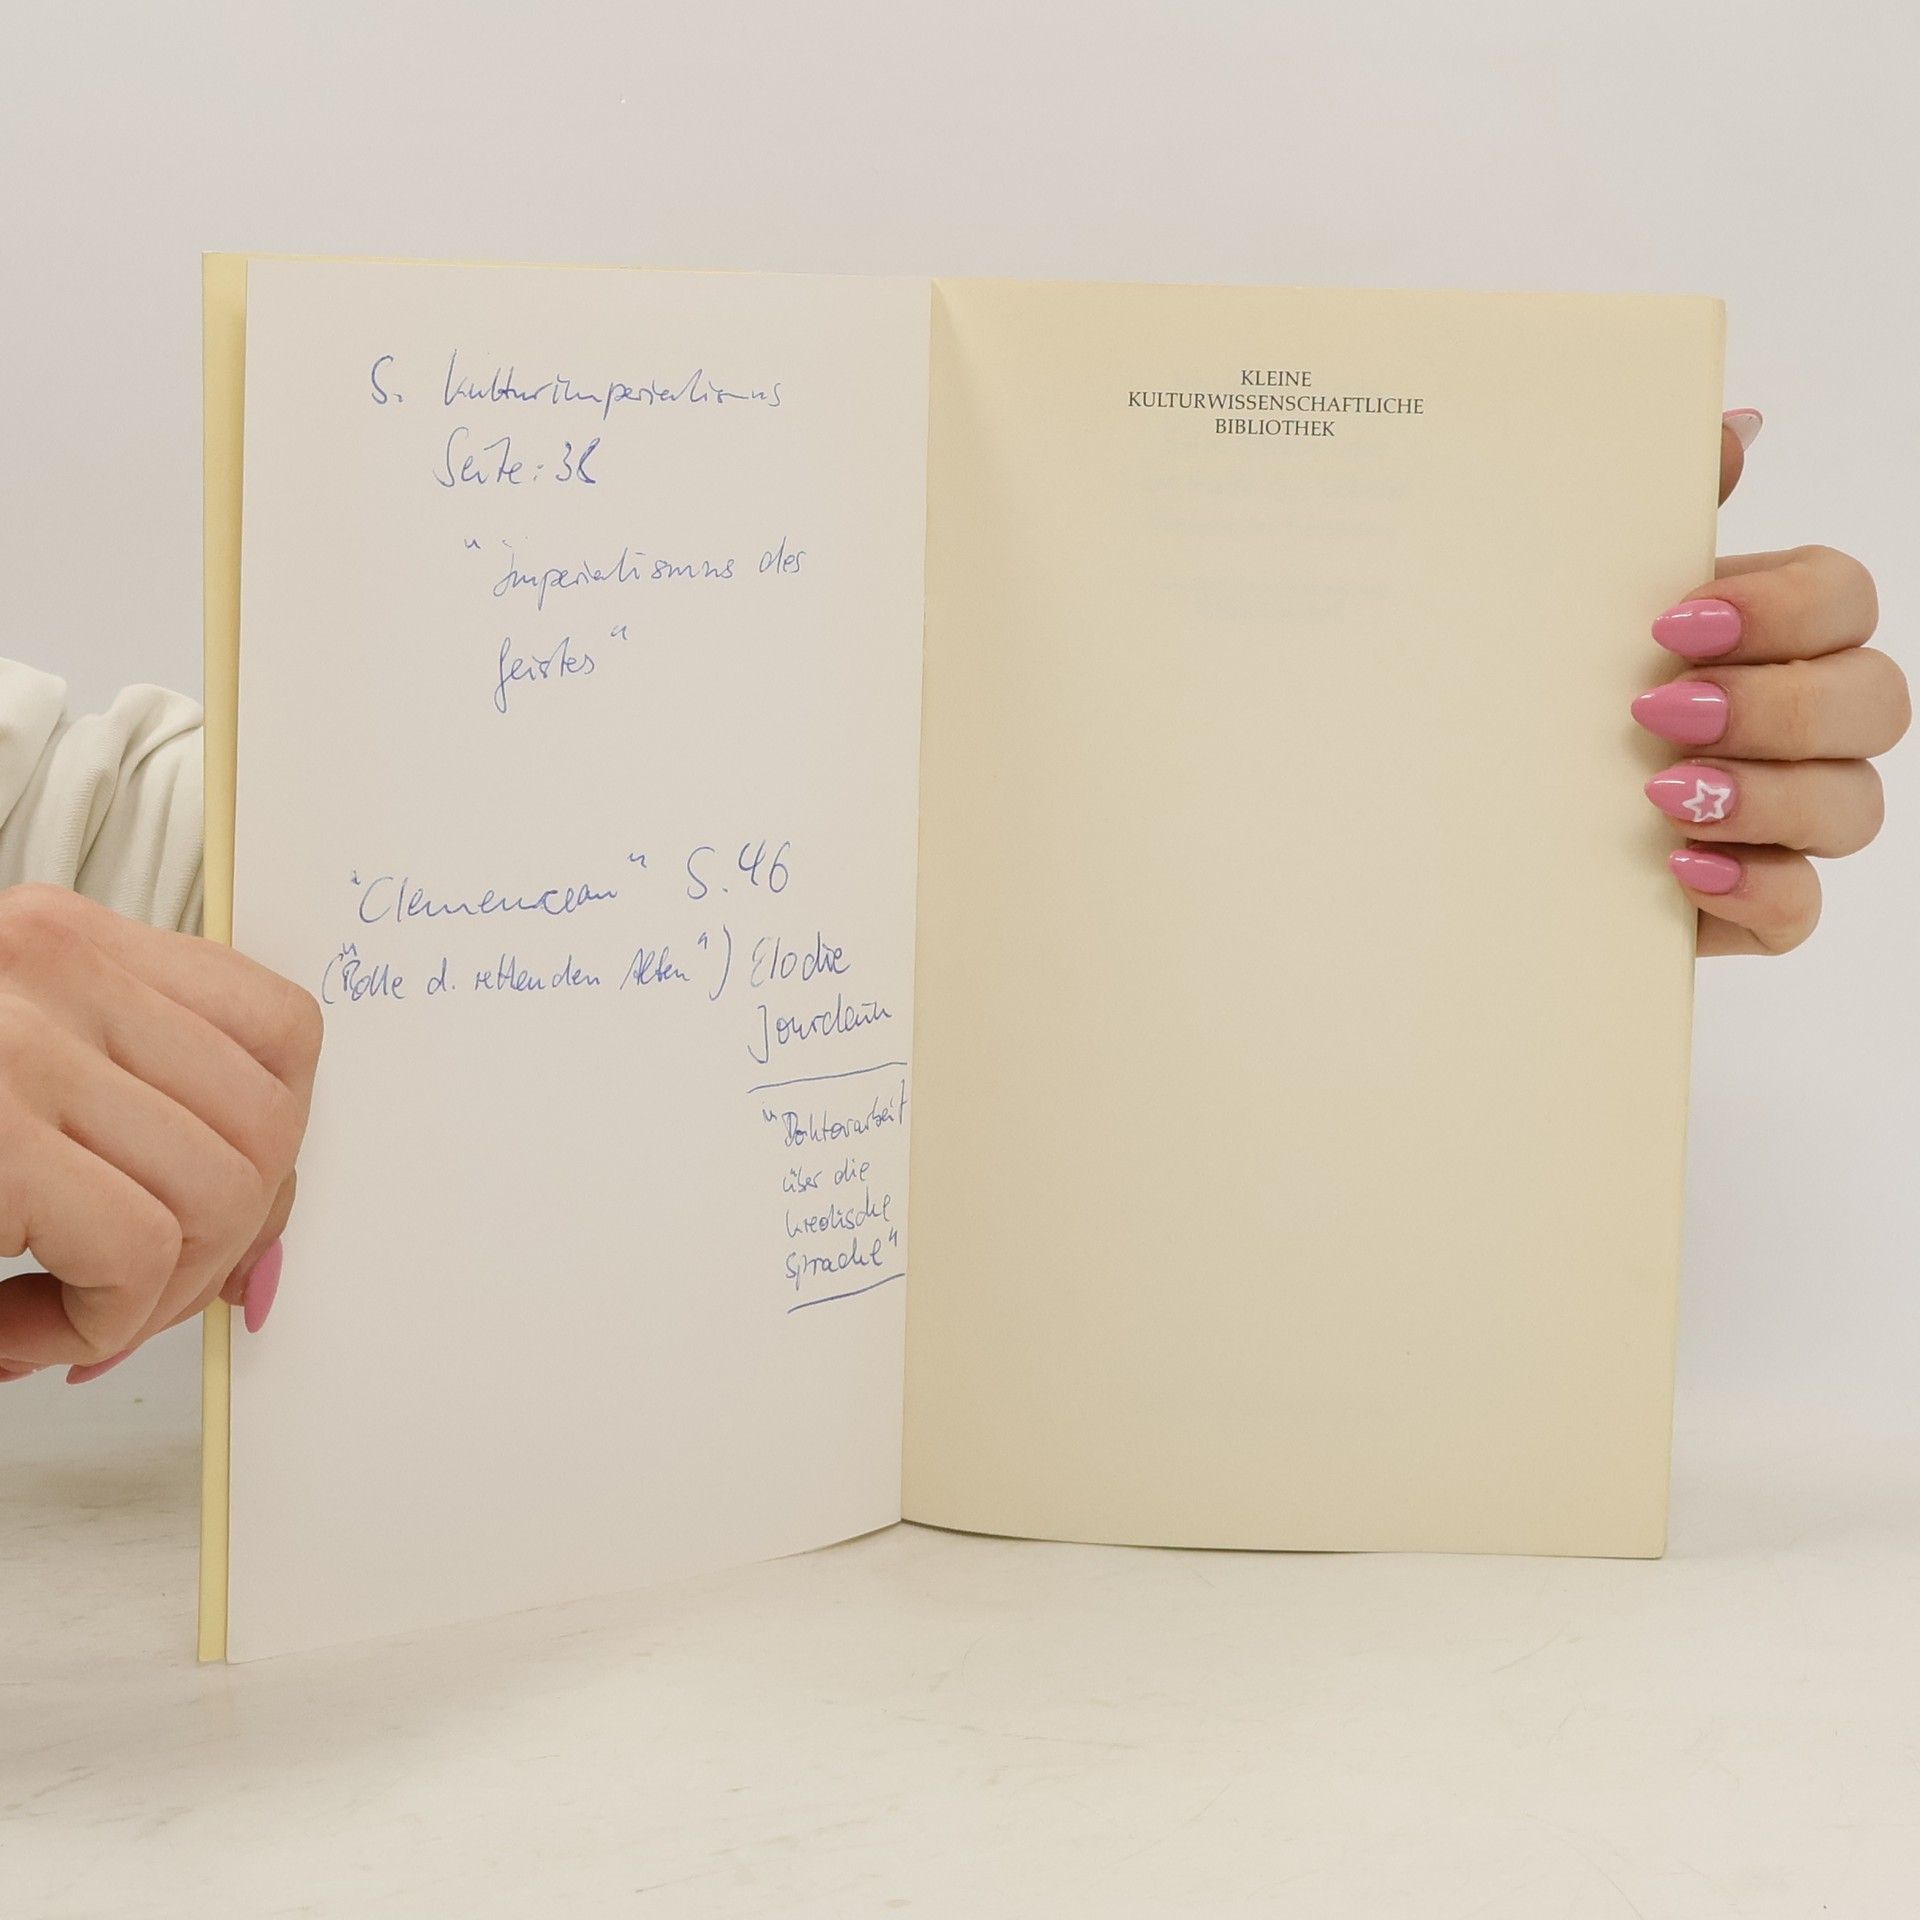 S. Kulturimperialismus
Seite: 38
"Imperialismus des
Geistes"
"Clemenceau" S. 46
("Rolle d. rettenden Alten") Elodie
Jourdain
"Doktorarbeit
über die
kreolische
Sprache"
KLEINE
KULTURWISSENSCHAFTLICHE
BIBLIOTHEK